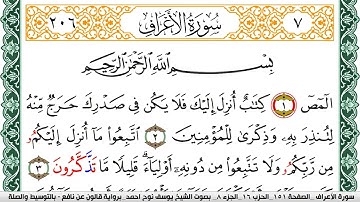 ٧ سُورَةُ الْأَعْرَافِ ٢٠٦
بِسْمِ اللَّهِ الرَّحْمَٰنِ الرَّحِيمِ
الٓمٓصٓ ١ كِتَٰبٌ أُنزِلَ إِلَيْكَ فَلَا يَكُن فِى صَدْرِكَ حَرَجٌ مِّنْهُ
لِتُنذِرَ بِهِۦ وَذِكْرَىٰ لِلْمُؤْمِنِينَ ٢ اَ۪تَّبِعُواْ مَآ أُنزِلَ إِلَيْكُم
مِّن رَّبِّكُمْ وَلَا تَتَّبِعُواْ مِن دُونِهِۦٓ أَوْلِيَآءَ قَلِيلًا مَّا تَذَّكَّرُونَ ٣
سورة الأعراف . الصفحة ١٥١ . الجزء ٨ . الحزب ١٦ . بصوت الشيخ يوسف نوح احمد . برواية قالون عن نافع - بالتوسيط والصلة